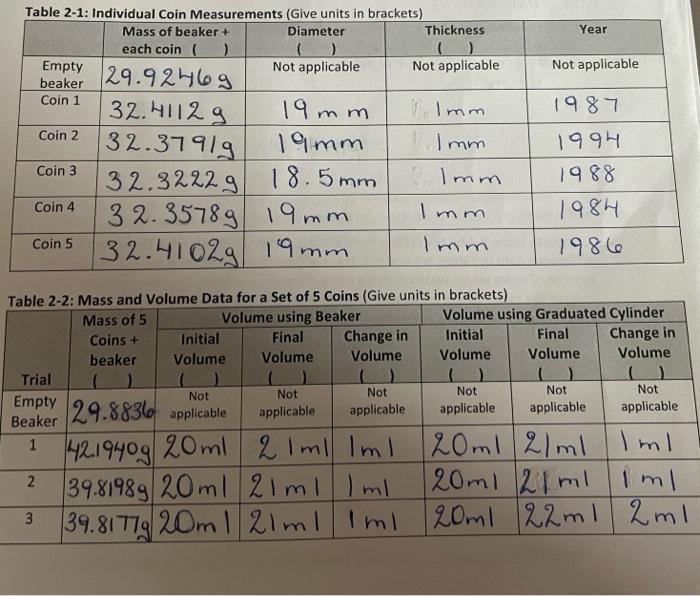 Table 2-1: Individual Coin Measurements (Give units in brackets)
Mass of beaker + each coin ( ) Diameter ( ) Thickness ( ) Year
Empty beaker 29.9246g Not applicable Not applicable Not applicable
Coin 1 32.4112g 19mm 1mm 1987
Coin 2 32.3791g 19mm 1mm 1994
Coin 3 32.3222g 18.5mm 1mm 1988
Coin 4 32.3578g 19mm 1mm 1984
Coin 5 32.4102g 19mm 1mm 1986
Table 2-2: Mass and Volume Data for a Set of 5 Coins (Give units in brackets)
Mass of 5 Volume using Beaker Volume using Graduated Cylinder
Coins + Initial Final Change in Initial Final Change in
beaker Volume Volume Volume Volume Volume Volume
Trial ( ) ( ) ( ) ( ) ( ) ( ) ( )
Empty Beaker 29.8836 Not applicable Not applicable Not applicable Not applicable Not applicable Not applicable
1 42.1940g 20ml 21ml 1ml 20ml 21ml 1ml
2 39.8198g 20ml 21ml 1ml 20ml 21ml 1ml
3 39.8177g 20ml 21ml 1ml 20ml 22ml 2ml